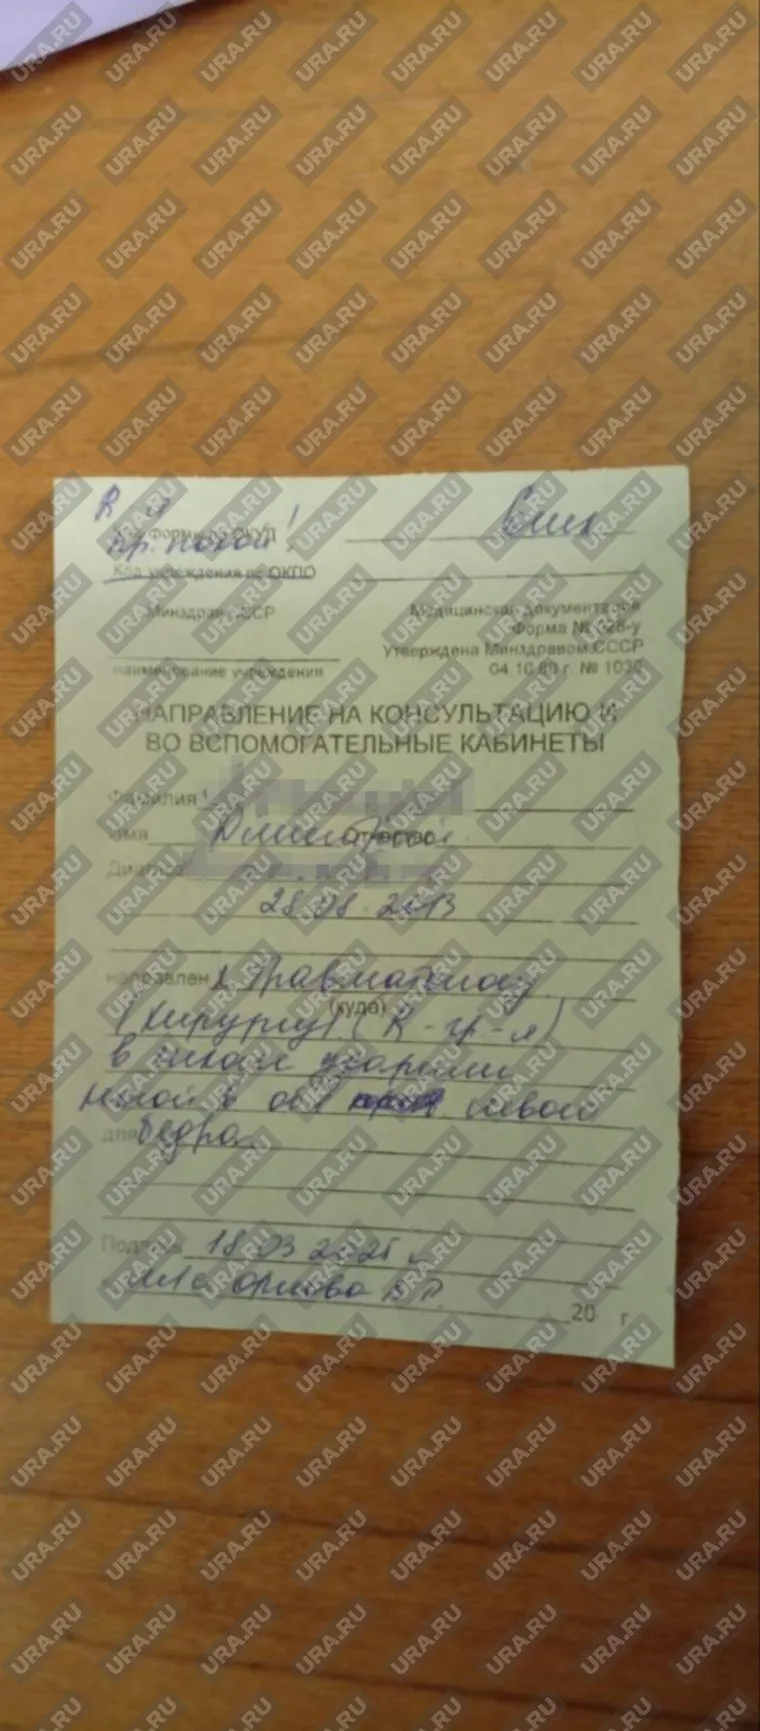 R я
Код формы по ОКУД
пр. покой!
6 шк
Код учреждения по ОКПО
Минздрав СССР
Медицинская документация
Форма № 028-у
Утверждена Минздравом СССР
04.10.80 г. № 1030
наименование учреждения
НАПРАВЛЕНИЕ НА КОНСУЛЬТАЦИЮ И
ВО ВСПОМОГАТЕЛЬНЫЕ КАБИНЕТЫ
Фамилия
Имя Отчество
Диагноз
28.08.2013
направлен к травматологу
(куда)
(хирургу) (R-гр-я)
в школе ударили
ногой в обл левого
для бедра
Подпись 18.03.2025 г
20 г
URA.RU